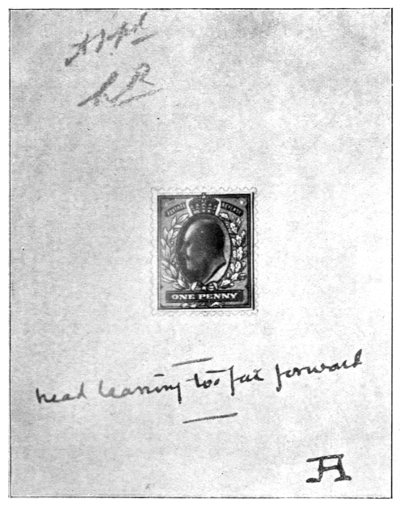 POSTAGE REVENUE
ONE PENNY
head leaning too far forward
A